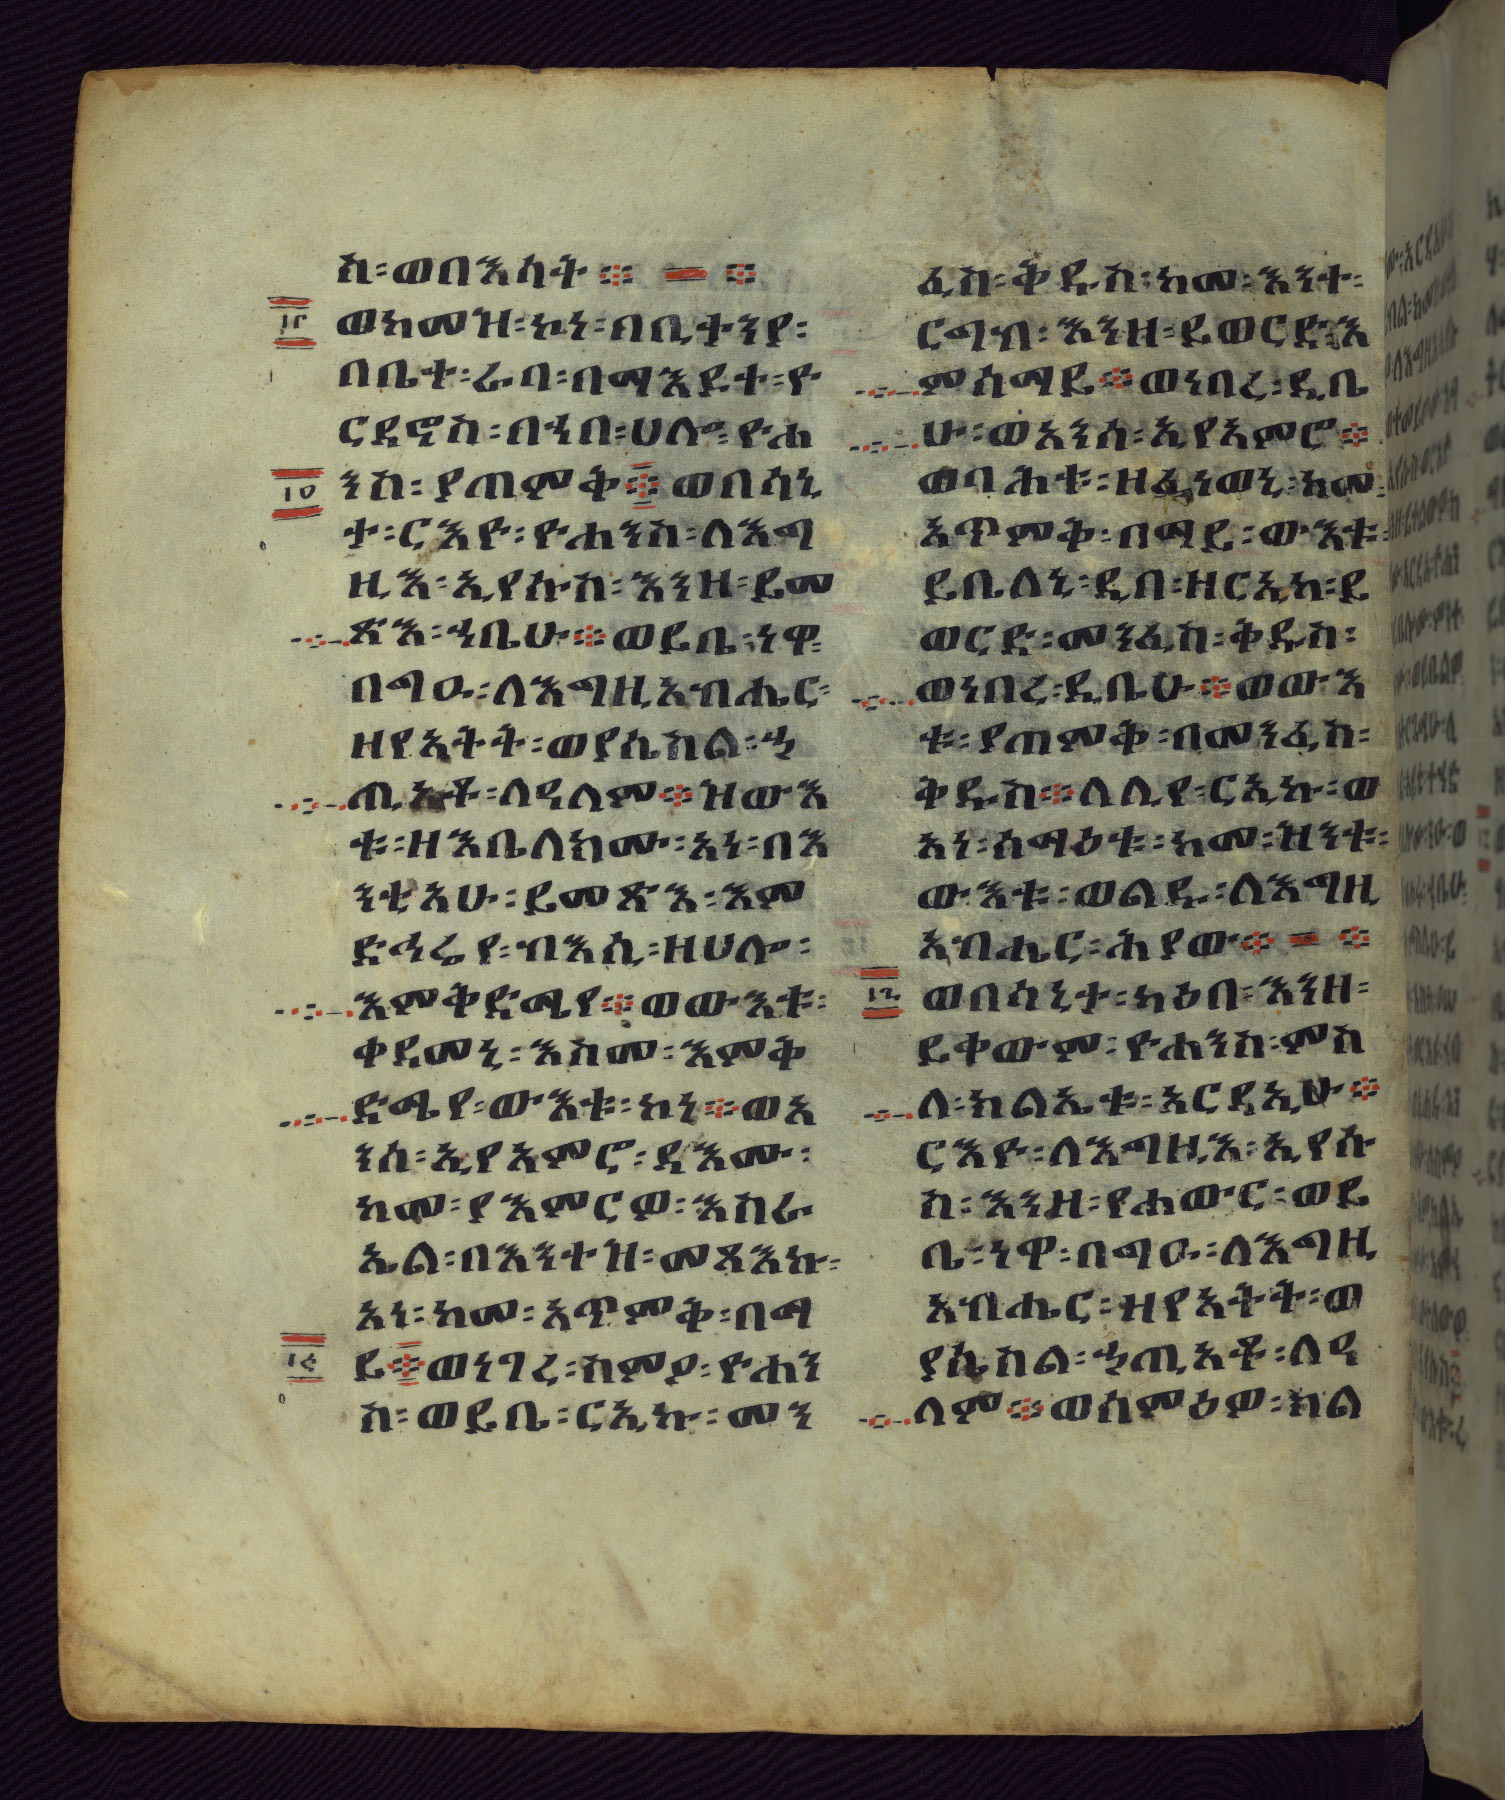 ስ፡ወበእሳት፨ ፨
፲፫
ወከመዝ፡ኮነ፡በቢታንያ፡
በቤተ፡ራባ፡በማእደተ፡ዮ
ርዳኖስ፡በኀበ፡ሀሎ፡ዮሐ
፲፬
ንስ፡ያጠምቅ፨ወበሳኒ
ታ፡ርእዮ፡ዮሐንስ፡ለእግ
ዚእ፡ኢየሱስ፡እንዘ፡ይመ
ጽእ፡ኀቤሁ፨ወይቤ፡ነዋ፡
በግዑ፡ለእግዚአብሔር፡
ዘየአትት፡ወያሴስል፡ኃ
ጢአቶ፡ለዓለም፨ዝውእ
ቱ፡ዘእቤለክሙ፡አነ፡በእ
ንቲአሁ፡ይመጽእ፡እም
ድኅሬየ፡ብእሲ፡ዘሀሎ፡
እምቅድሜየ፨ወውእቱ፡
ቀዳመኒ፡እስመ፡እምቅ
ድሜየ፡ውእቱ፡ኮነ፨ወአ
ንሰ፡ኢየአምሮ፡ዳእሙ፡
ከመ፡ያእምርዎ፡እስራ
ኤል፡በእንተዝ፡መጻእኩ፡
አነ፡ከመ፡አጥምቅ፡በማ
ይ፨ወነገረ፡ስምዖ፡ዮሐን
ስ፡ወይቤ፡ርኢኩ፡መን
ፈስ፡ቅዱስ፡ከመ፡እንተ፡
ርግብ፡እንዘ፡ይወርድ፡እ
ምሰማይ፨ወነበረ፡ዲቤ
ሁ፡ወአንሰ፡ኢየአምሮ፨
ወባሕቱ፡ዘፈነወኒ፡ከመ፡
አጥምቅ፡በማይ፡ውእቱ፡
ይቤለኒ፡ዲበ፡ዘርኢከ፡ይ
ወርድ፡መንፈስ፡ቅዱስ፡
ወነበረ፡ዲቤሁ፨ወውእ
ቱ፡ያጠምቅ፡በመንፈስ፡
ቅዱስ፨ለሊየ፡ርኢኩ፡ወ
አነ፡ሰማዕቱ፡ከመ፡ዝንቱ፡
ውእቱ፡ወልዱ፡ለእግዚ
አብሔር፡ሕያው፨ ፨
ወበሳኒታ፡ካዕበ፡እንዘ፡
ይቀውም፡ዮሐንስ፡ምስ
ለ፡ክልኤቱ፡አርዳኢሁ፨
ርእዮ፡ለእግዚእ፡ኢየሱ
ስ፡እንዘ፡የሐውር፡ወይ
ቤ፡ነዋ፡በግዑ፡ለእግዚ
አብሔር፡ዘየአትት፡ወ
ያሴስል፡ኃጢአቶ፡ለዓ
ለም፨ወሰምዕዎ፡ክል